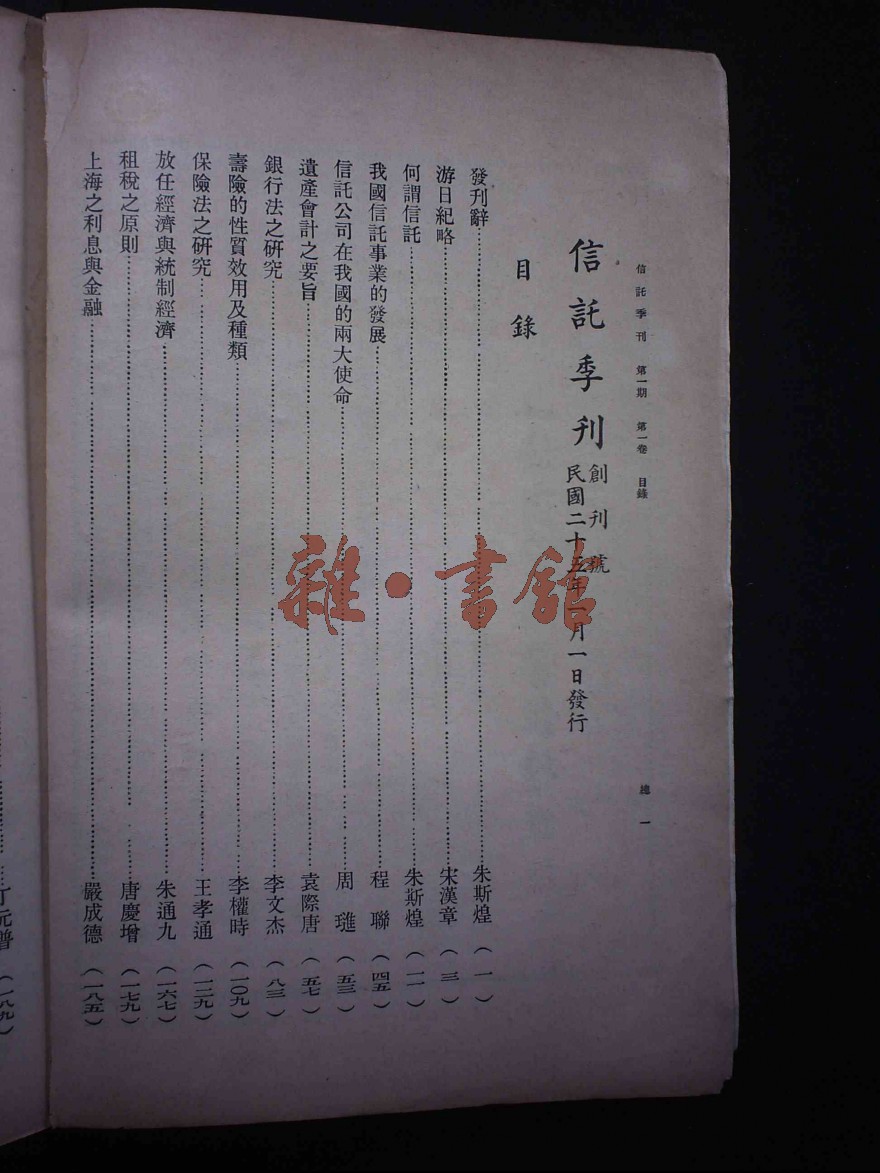 信託季刊 第一期 第一卷 目錄
總 一
信託季刊
創刊號
民國二十五年一月一日發行
目錄
發刊辭……朱斯煌(一)
游日紀略……宋漢章(三)
何謂信託……朱斯煌(一一)
我國信託事業的發展……程 聯(四五)
信託公司在我國的兩大使命……周 (五三)
遺產會計之要旨……袁際唐(五七)
銀行法之研究……李文杰(八三)
壽險的性質效用及種類……李權時(一〇九)
保險法之研究……王孝通(一二九)
放任經濟與統制經濟……朱通九(一六七)
租稅之原則……唐慶增(一七九)
上海之利息與金融……嚴成德(一八五)
丁元普(一八九)
雜·書館